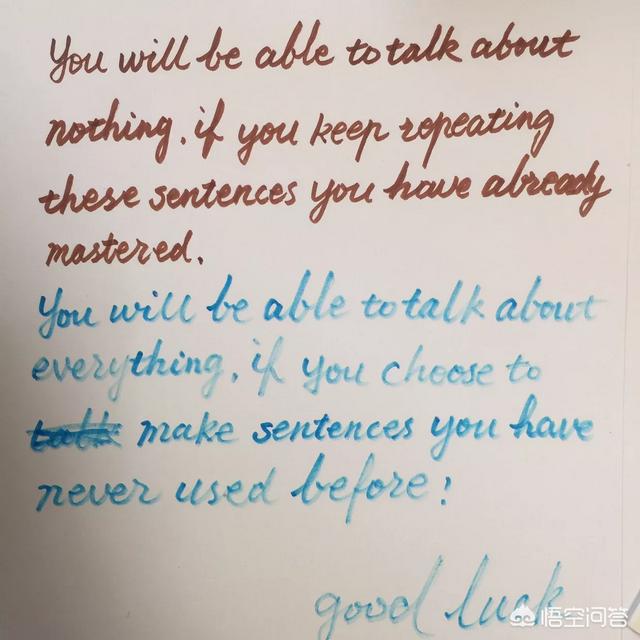 You will be able to talk about
nothing, if you keep repeating
these sentences you have already
mastered.
You will be able to talk about
everything, if you choose to
talk make sentences you have
never used before!
good luck
悟空问答